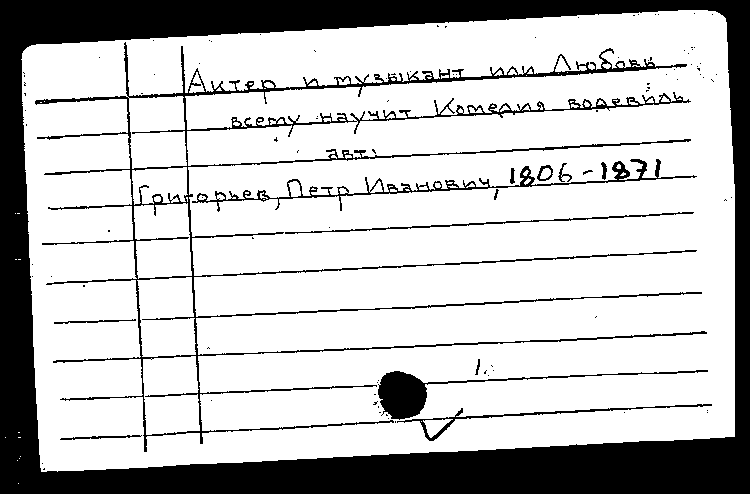 Актер и музыкант или Любовь
всему научит Комедия водевиль
авт.
Григорьев, Петр Иванович, 1806-1871
1.